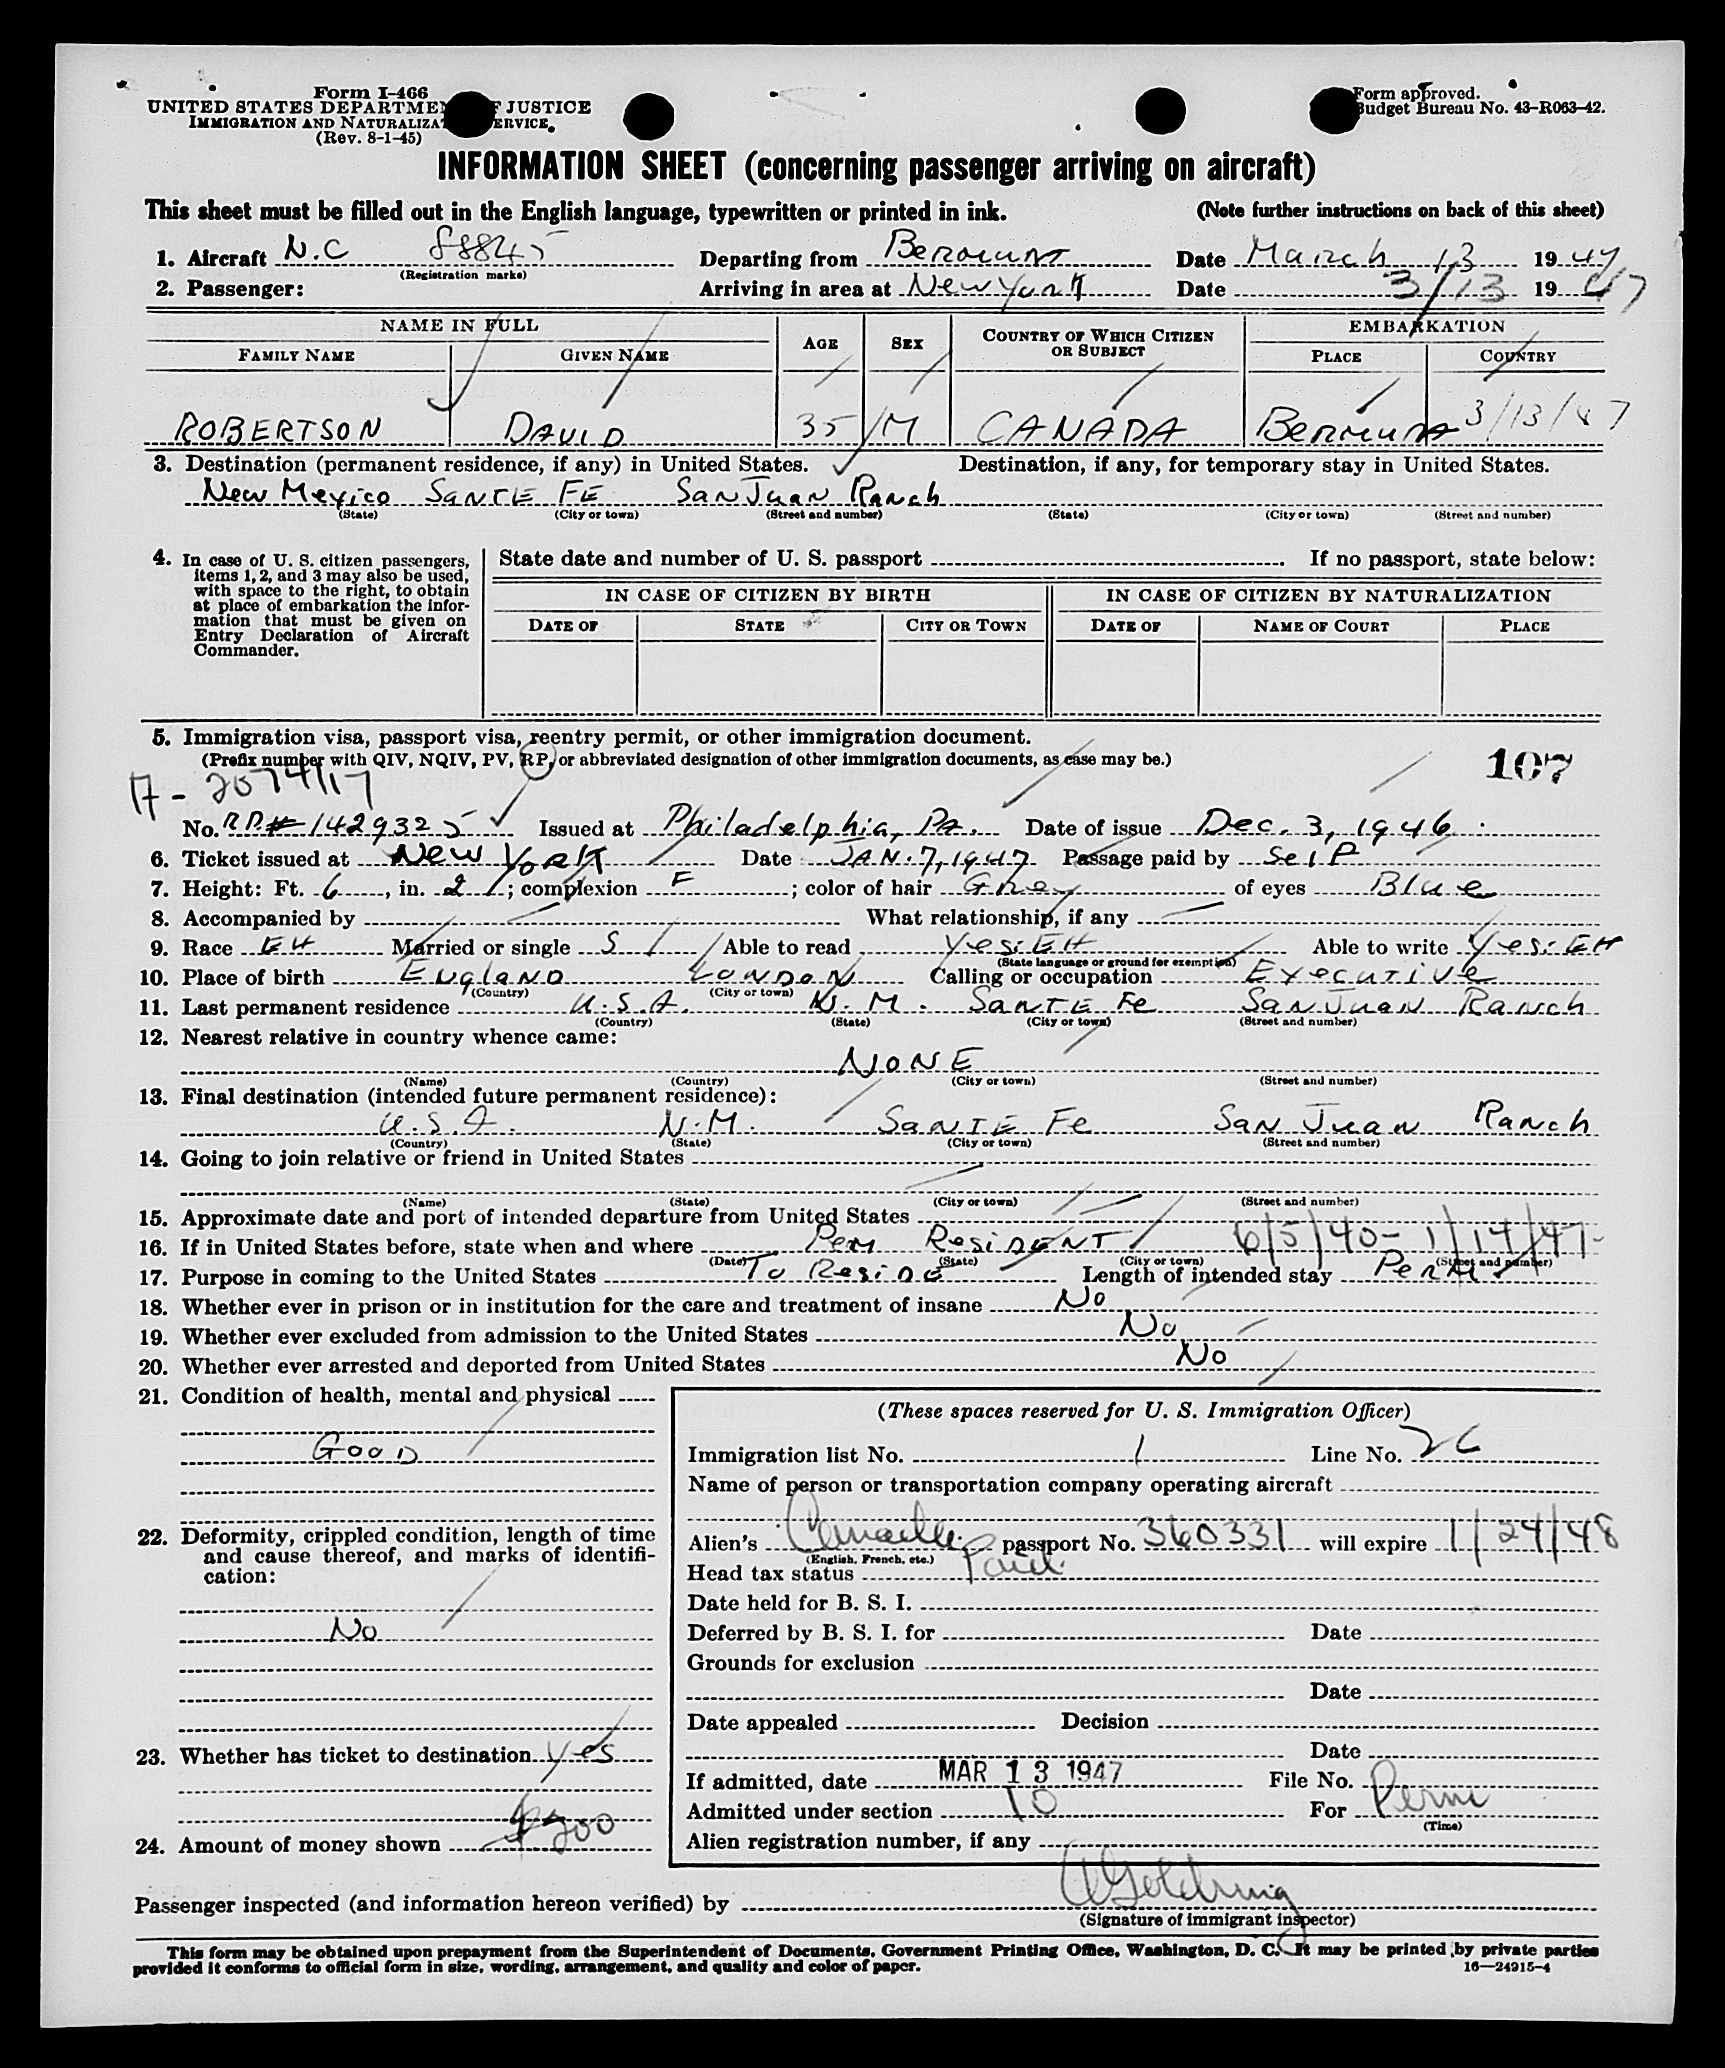 Form I-466
UNITED STATES DEPARTMENT OF JUSTICE
IMMIGRATION AND NATURALIZATION SERVICE
(Rev. 8-1-45)
Form approved.
Budget Bureau No. 43-R063-42.
INFORMATION SHEET (concerning passenger arriving on aircraft)
This sheet must be filled out in the English language, typewritten or printed in ink. (Note further instructions on back of this sheet)
1. Aircraft N.C 88845 Departing from Bermuda Date March 13 1947
(Registration marks)
2. Passenger: Arriving in area at New York Date 3/13 1947
NAME IN FULL AGE SEX COUNTRY OF WHICH CITIZEN OR SUBJECT EMBARKATION
FAMILY NAME GIVEN NAME PLACE COUNTRY
ROBERTSON DAVID 35 M CANADA Bermuda 3/13/47
3. Destination (permanent residence, if any) in United States. Destination, if any, for temporary stay in United States.
New Mexico SANTE FE San Juan Ranch
(State) (City or town) (Street and number) (State) (City or town) (Street and number)
4. In case of U. S. citizen passengers, items 1, 2, and 3 may also be used, with space to the right, to obtain at place of embarkation the information that must be given on Entry Declaration of Aircraft Commander.
State date and number of U. S. passport If no passport, state below:
IN CASE OF CITIZEN BY BIRTH IN CASE OF CITIZEN BY NATURALIZATION
DATE OF STATE CITY OR TOWN DATE OF NAME OF COURT PLACE
5. Immigration visa, passport visa, reentry permit, or other immigration document.
(Prefix number with QIV, NQIV, PV, RP, or abbreviated designation of other immigration documents, as case may be.) 107
A-2074117
No. RP.# 1429325 Issued at Philadelphia, Pa. Date of issue Dec. 3, 1946
6. Ticket issued at New York Date JAN. 7, 1947 Passage paid by Self
7. Height: Ft. 6, in. 2; complexion F; color of hair Grey of eyes Blue
8. Accompanied by What relationship, if any
9. Race EH Married or single S Able to read Yes: EH Able to write Yes: EH
(State language or ground for exemption)
10. Place of birth England London Calling or occupation Executive
(Country) (City or town)
11. Last permanent residence U.S.A. N.M. SANTE Fe San Juan Ranch
(Country) (State) (City or town) (Street and number)
12. Nearest relative in country whence came:
NONE
(Name) (Country) (City or town) (Street and number)
13. Final destination (intended future permanent residence):
U.S.A. N.M. SANTE Fe San Juan Ranch
(Country) (State) (City or town) (Street and number)
14. Going to join relative or friend in United States
(Name) (State) (City or town) (Street and number)
15. Approximate date and port of intended departure from United States
16. If in United States before, state when and where Perm Resident 6/5/40-1/14/47
(Date) (State) (City or town) (Street and number)
17. Purpose in coming to the United States To Reside Length of intended stay Perm
18. Whether ever in prison or in institution for the care and treatment of insane No
19. Whether ever excluded from admission to the United States No
20. Whether ever arrested and deported from United States No
21. Condition of health, mental and physical
Good
22. Deformity, crippled condition, length of time and cause thereof, and marks of identification:
No
23. Whether has ticket to destination Yes
24. Amount of money shown $200
(These spaces reserved for U. S. Immigration Officer)
Immigration list No. 1 Line No. 26
Name of person or transportation company operating aircraft
Alien's passport No. 360331 will expire 1/24/48
(English, French, etc.)
Head tax status Paid
Date held for B. S. I.
Deferred by B. S. I. for Date
Grounds for exclusion
Date
Date appealed Decision
Date
If admitted, date MAR 13 1947 File No.
Admitted under section 10 For Perm
(Time)
Alien registration number, if any
Passenger inspected (and information hereon verified) by
(Signature of immigrant inspector)
This form may be obtained upon prepayment from the Superintendent of Documents, Government Printing Office, Washington, D. C. It may be printed by private parties
provided it conforms to official form in size, wording, arrangement, and quality and color of paper. 16—24915-4